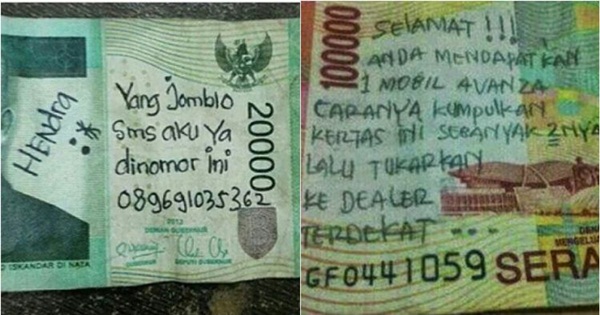 HENDRA :*
Yang Jomblo
Sms aku Ya
dinomor ini
089691035362
20000
DEWAN GUBERNUR
DEPUTI GUBERNUR
ISKANDAR DI NATA
100000
SELAMAT !!!
ANDA MENDAPATKAN
1 MOBIL AVANZA
CARANYA KUMPULKAN
KERTAS INI SEBANYAK 2NYA
LALU TUKARKAN
KE DEALER
TERDEKAT ---
GF0441059 SERA